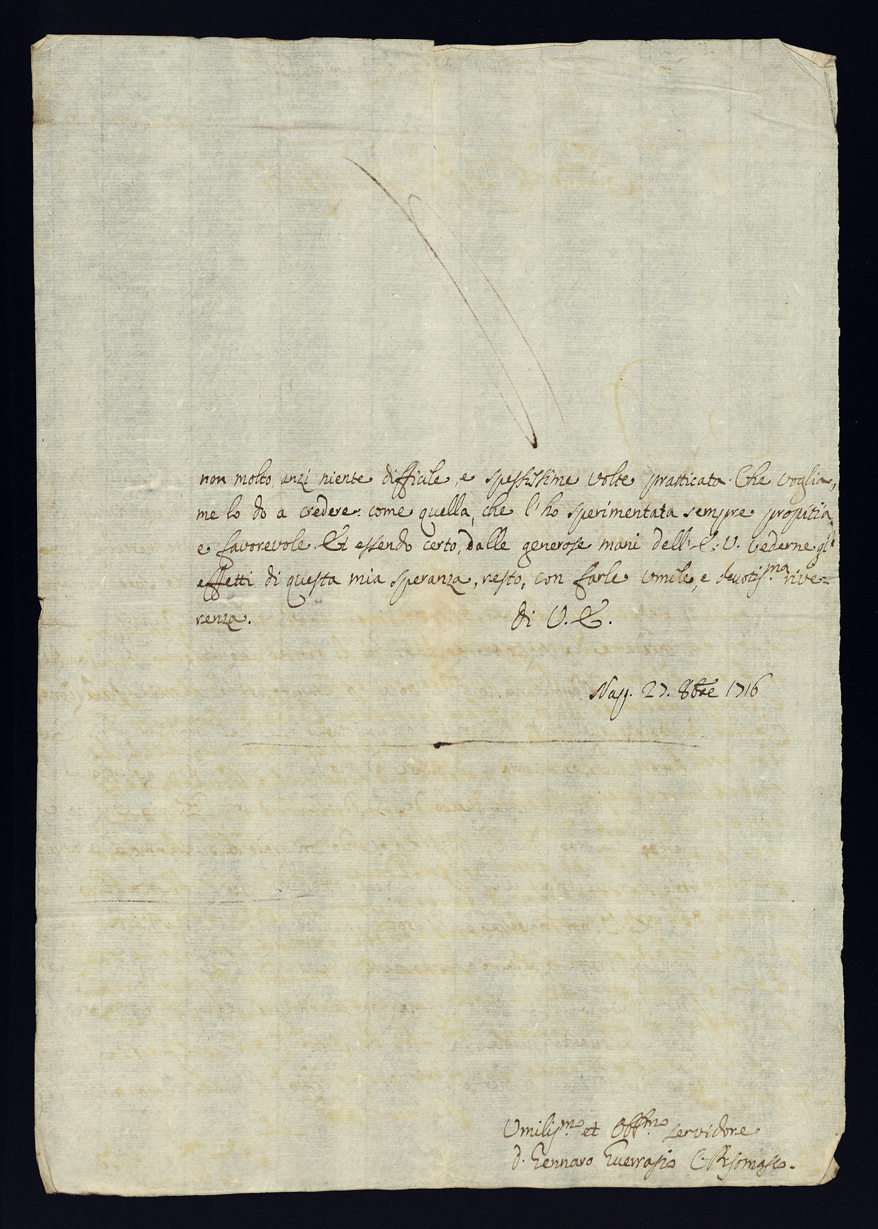 non molto anzi niente difficile, e spessissime volte pratticata. Che voglia,
me lo do a credere: come quella, che l'ho sperimentata sempre propitia,
e favorevole. Et essendo certo, dalle generose mani dell'E. V. vederne gl'
effetti di questa mia speranza, resto, con farle umile, e devotis.ma rive=
renza.
di V. E.
Nap. 27. 8bre 1716
Umiliss.mo et Obb.mo servidore
d. Gennaro